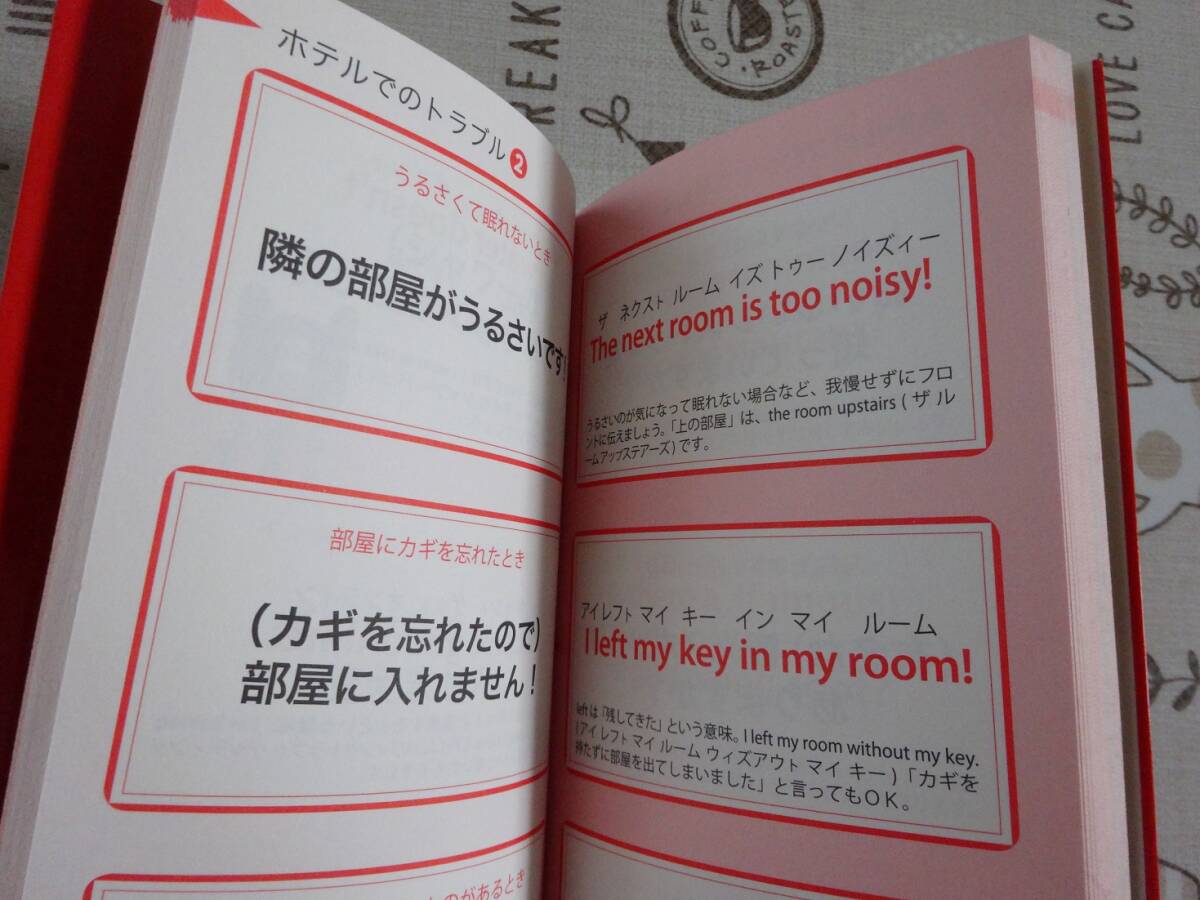 ホテルでのトラブル2
うるさくて眠れないとき
隣の部屋がうるさいです!
部屋にカギを忘れたとき
(カギを忘れたので)
部屋に入れません!
のがあるとき
ザ ネクスト ルーム イズ トゥー ノイズィー
The next room is too noisy!
うるさいのが気になって眠れない場合など、我慢せずにフロ
ントに伝えましょう。「上の部屋」は、the room upstairs(ザ ル
ームアップステアーズ)です。
アイ レフト マイ キー イン マイ ルーム
I left my key in my room!
leftは「残してきた」という意味。I left my room without my key.
(アイ レフト マイ ルーム ウィズアウト マイ キー)「カギを
持たずに部屋を出てしまいました」と言ってもOK。
COFFEE
ROAST
REAK
LOVE CA